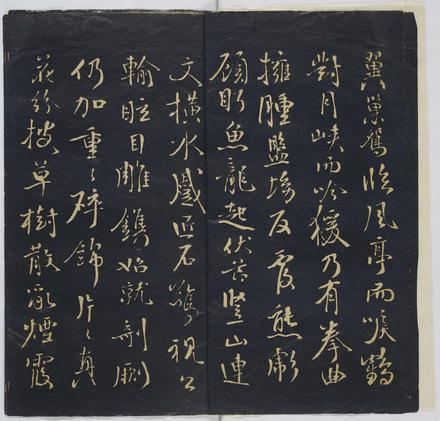 翼巢鴛臨風亭而唳鶴
對月峽而吟猨乃有拳曲
擁腫盤坳反覆熊彪
顧盼魚龍起伏節豎山連
文橫水蹙匠石驚視公
輸眩目雕鐫始就剞劂
仍加重〻碎錦片〻真
花紛披草樹散亂煙霞